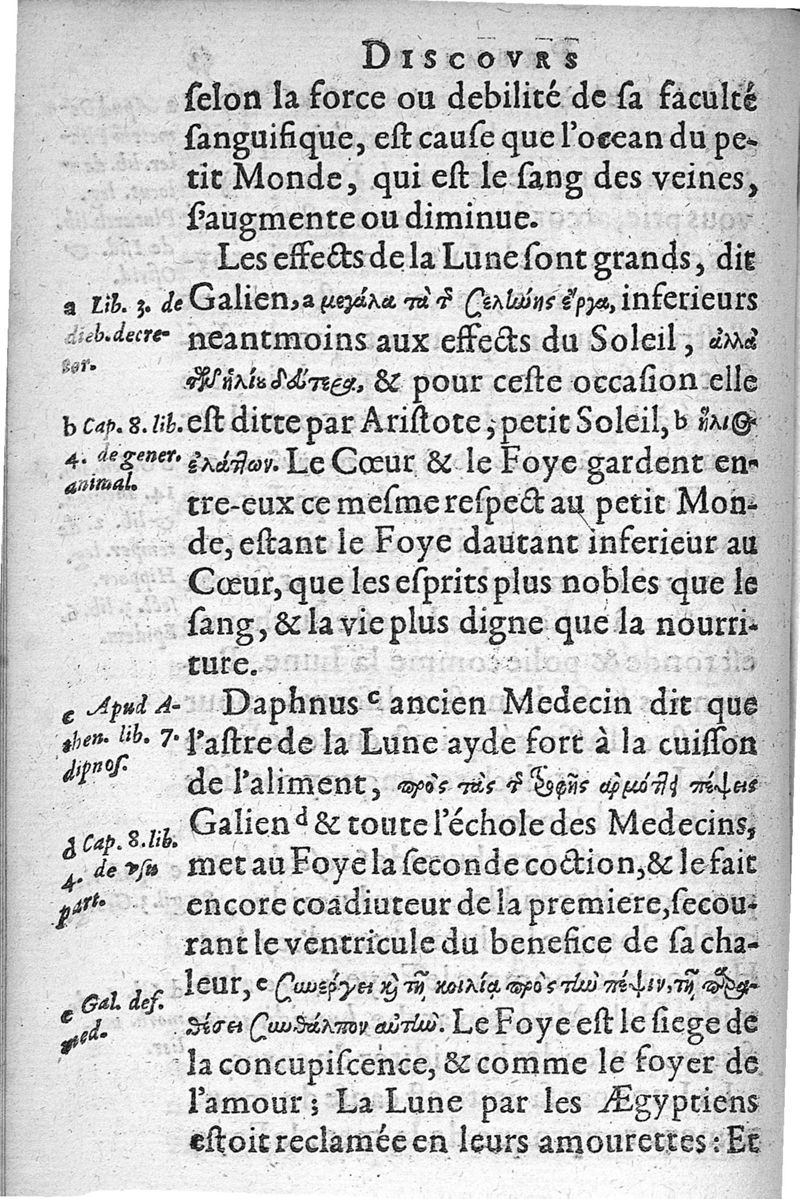 DISCOVRS
ſelon la force ou debilité de ſa faculté
ſanguifique, eſt cauſe que l'ocean du pe-
tit Monde, qui eſt le ſang des veines,
ſ'augmente ou diminue.
Les effects de la Lune ſont grands, dit
Galien, a μεγάλα τὰ τ͂ Σελίωης ἔργα, inferieurs
neantmoins aux effects du Soleil, ἀλλὰ
δδύτερα, & pour ceſte occaſion elle
eſt ditte par Ariſtote, petit Soleil, b ἥλιος
ἐλάτ]ων. Le Cœur & le Foye gardent en-
tre-eux ce meſme reſpect au petit Mon-
de, eſtant le Foye dautant inferieur au
Cœur, que les eſprits plus nobles que le
ſang, & la vie plus digne que la nourri-
ture.
Daphnus c ancien Medecin dit que
l'aſtre de la Lune ayde fort à la cuiſſon
de l'aliment, πρὸς τὰς τ͂ τροφῆς ἁρμότ]ει πέψεις
Galien d & toute l'échole des Medecins,
met au Foye la ſeconde coction, & le fait
encore coadiuteur de la premiere, ſecou-
rant le ventricule du benefice de ſa cha-
leur, e Σωεργει κ̀ τῇ κοιλίᾳ πρὸς τίω πέψιν, τῇ πᾶρα-
θέσει Σωθάλπον αὐτίω. Le Foye eſt le ſiege de
la concupiſcence, & comme le foyer de
l'amour; La Lune par les Ægyptiens
eſtoit reclamée en leurs amourettes: Et
a Lib. 3. de
dieb. decre-
tor.
b Cap. 8. lib.
4. de gener.
animal.
c Apud A-
then. lib. 7.
dipnoſ.
d Cap. 8. lib.
4. de vſu
part.
e Gal. def.
med.